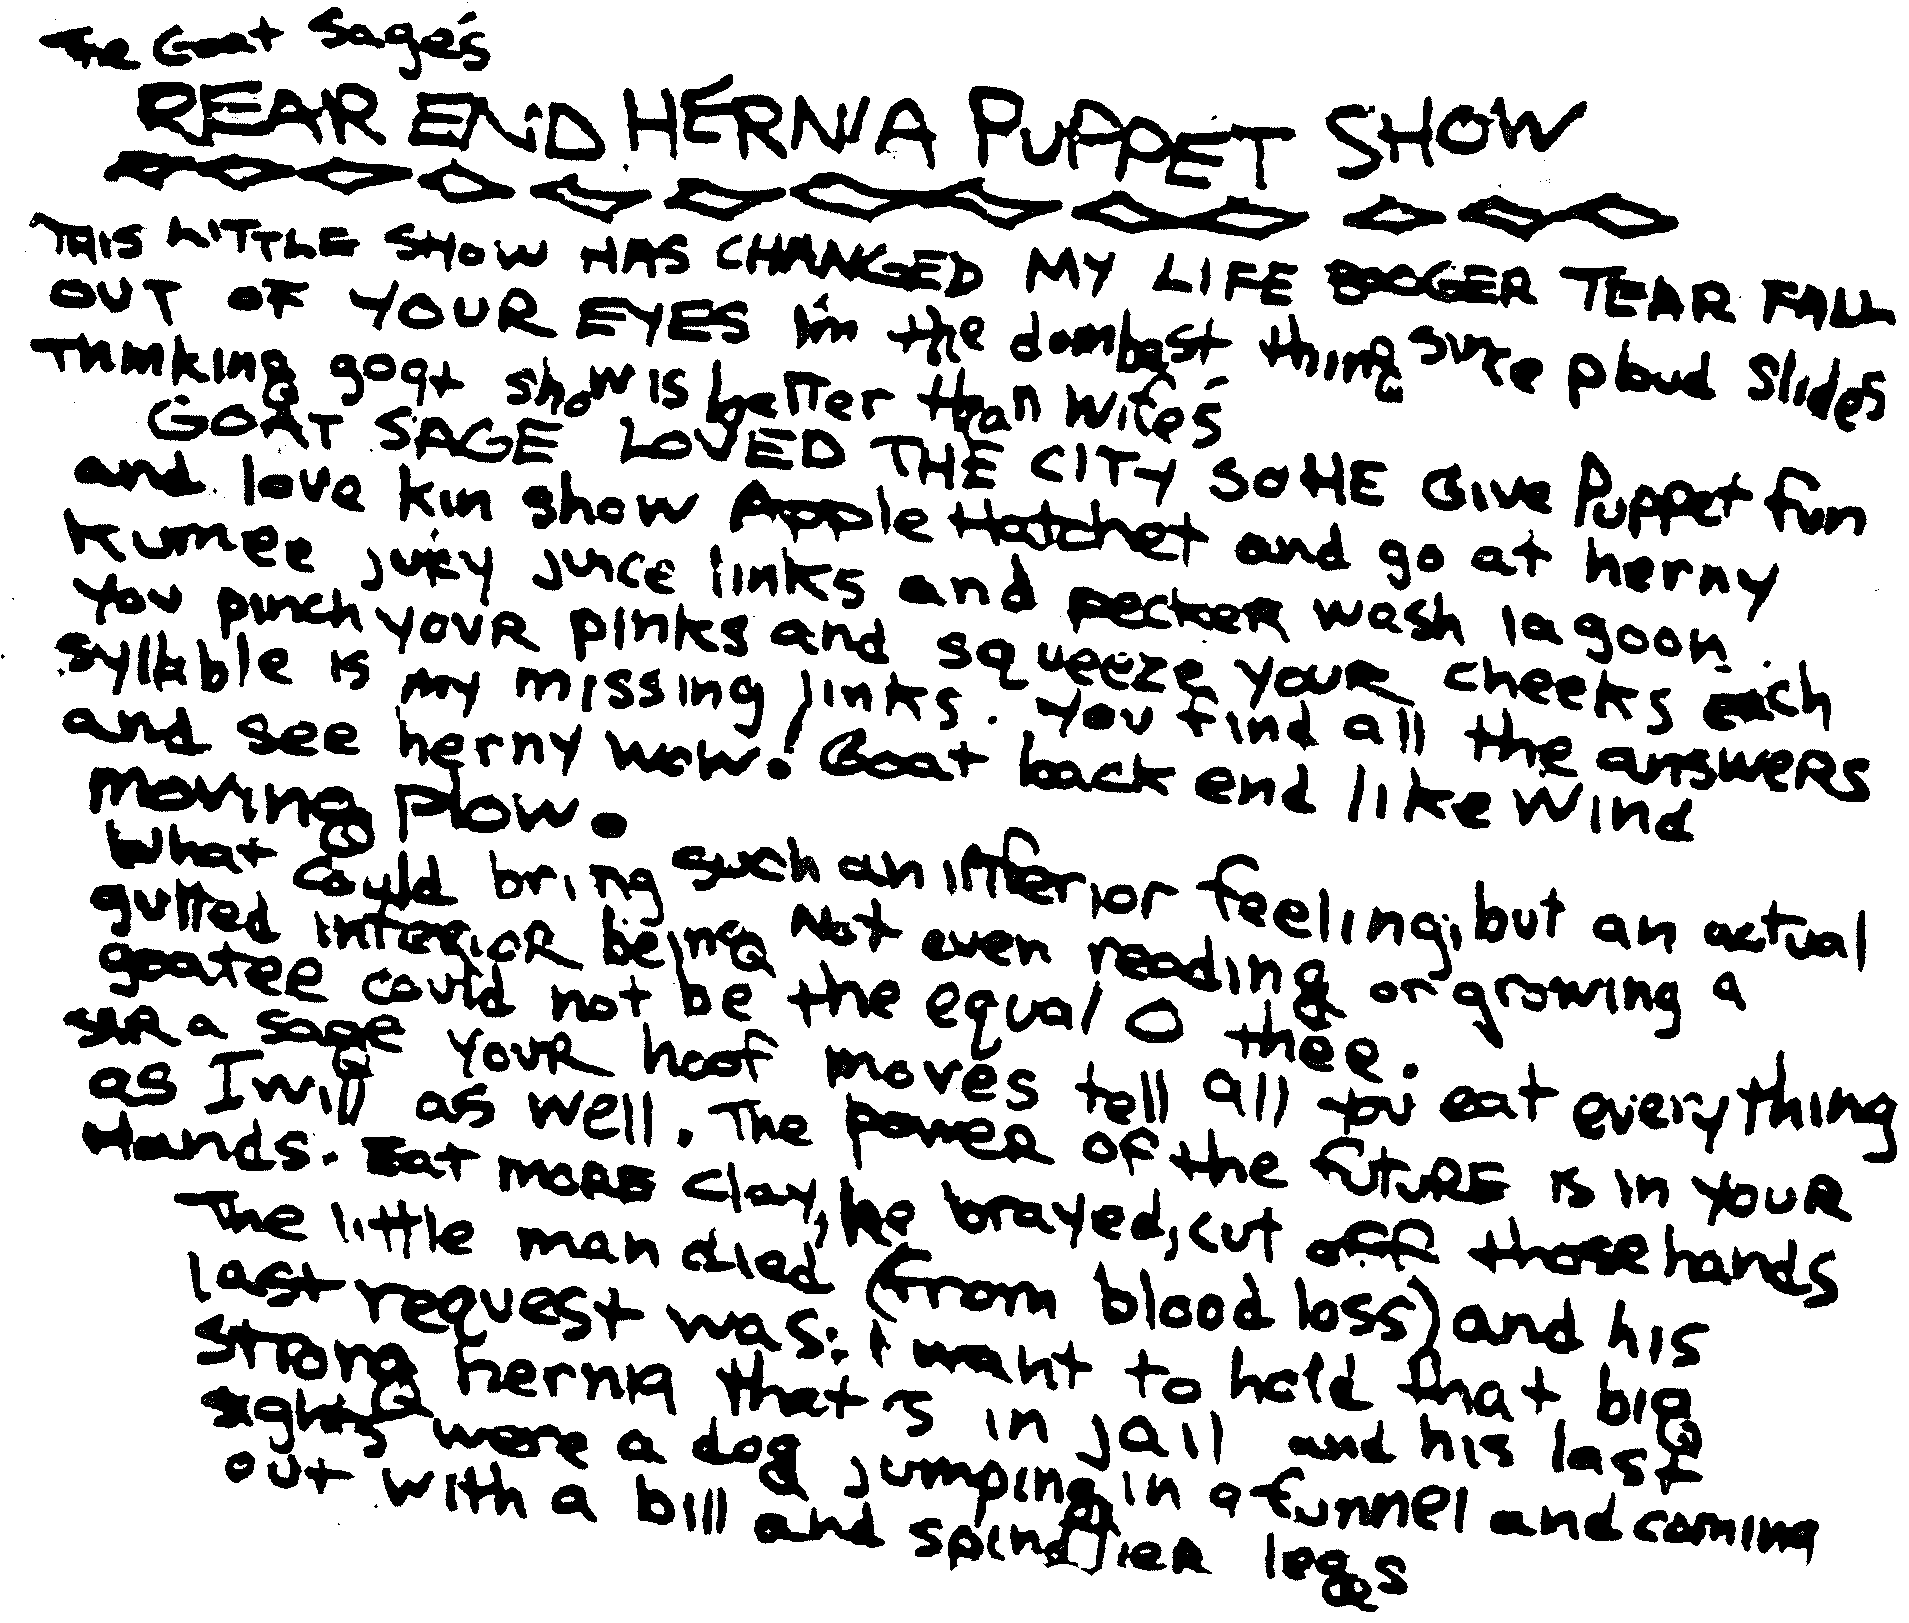 The Goat Sage's
REAR END HERNIA PUPPET SHOW
THIS LITTLE SHOW HAS CHANGED MY LIFE BOOGER TEAR FALL
OUT OF YOUR EYES I'm the dombest thing sure ploud slides
Thinking goat show is better than wife's
GOAT SAGE LOVED THE CITY SO HE Give Puppet fun
and love kin show Apple Hatchet and go at herny
Kumee jury juice links and pecker wash lagoon.
You punch your pinks and squeeze your cheeks each
syllable is my missing links. You find all the answers
and see herny wow. Goat back end like wind
moving plow.
What could bring such an inferior feeling, but an actual
gutted interior being Not even reading or growing a
goatee could not be the equal O thee.
SIR a sage your hoof moves tell all you eat everything
as I will as well. The power of the future is in your
Hands. Eat more clay, he brayed, cut off those hands
The little man died (from blood loss) and his
last request was: I want to hold that big
strong hernia that is in jail and his last
sights were a dog jumping in a funnel and coming
out with a bill and spindlier legs